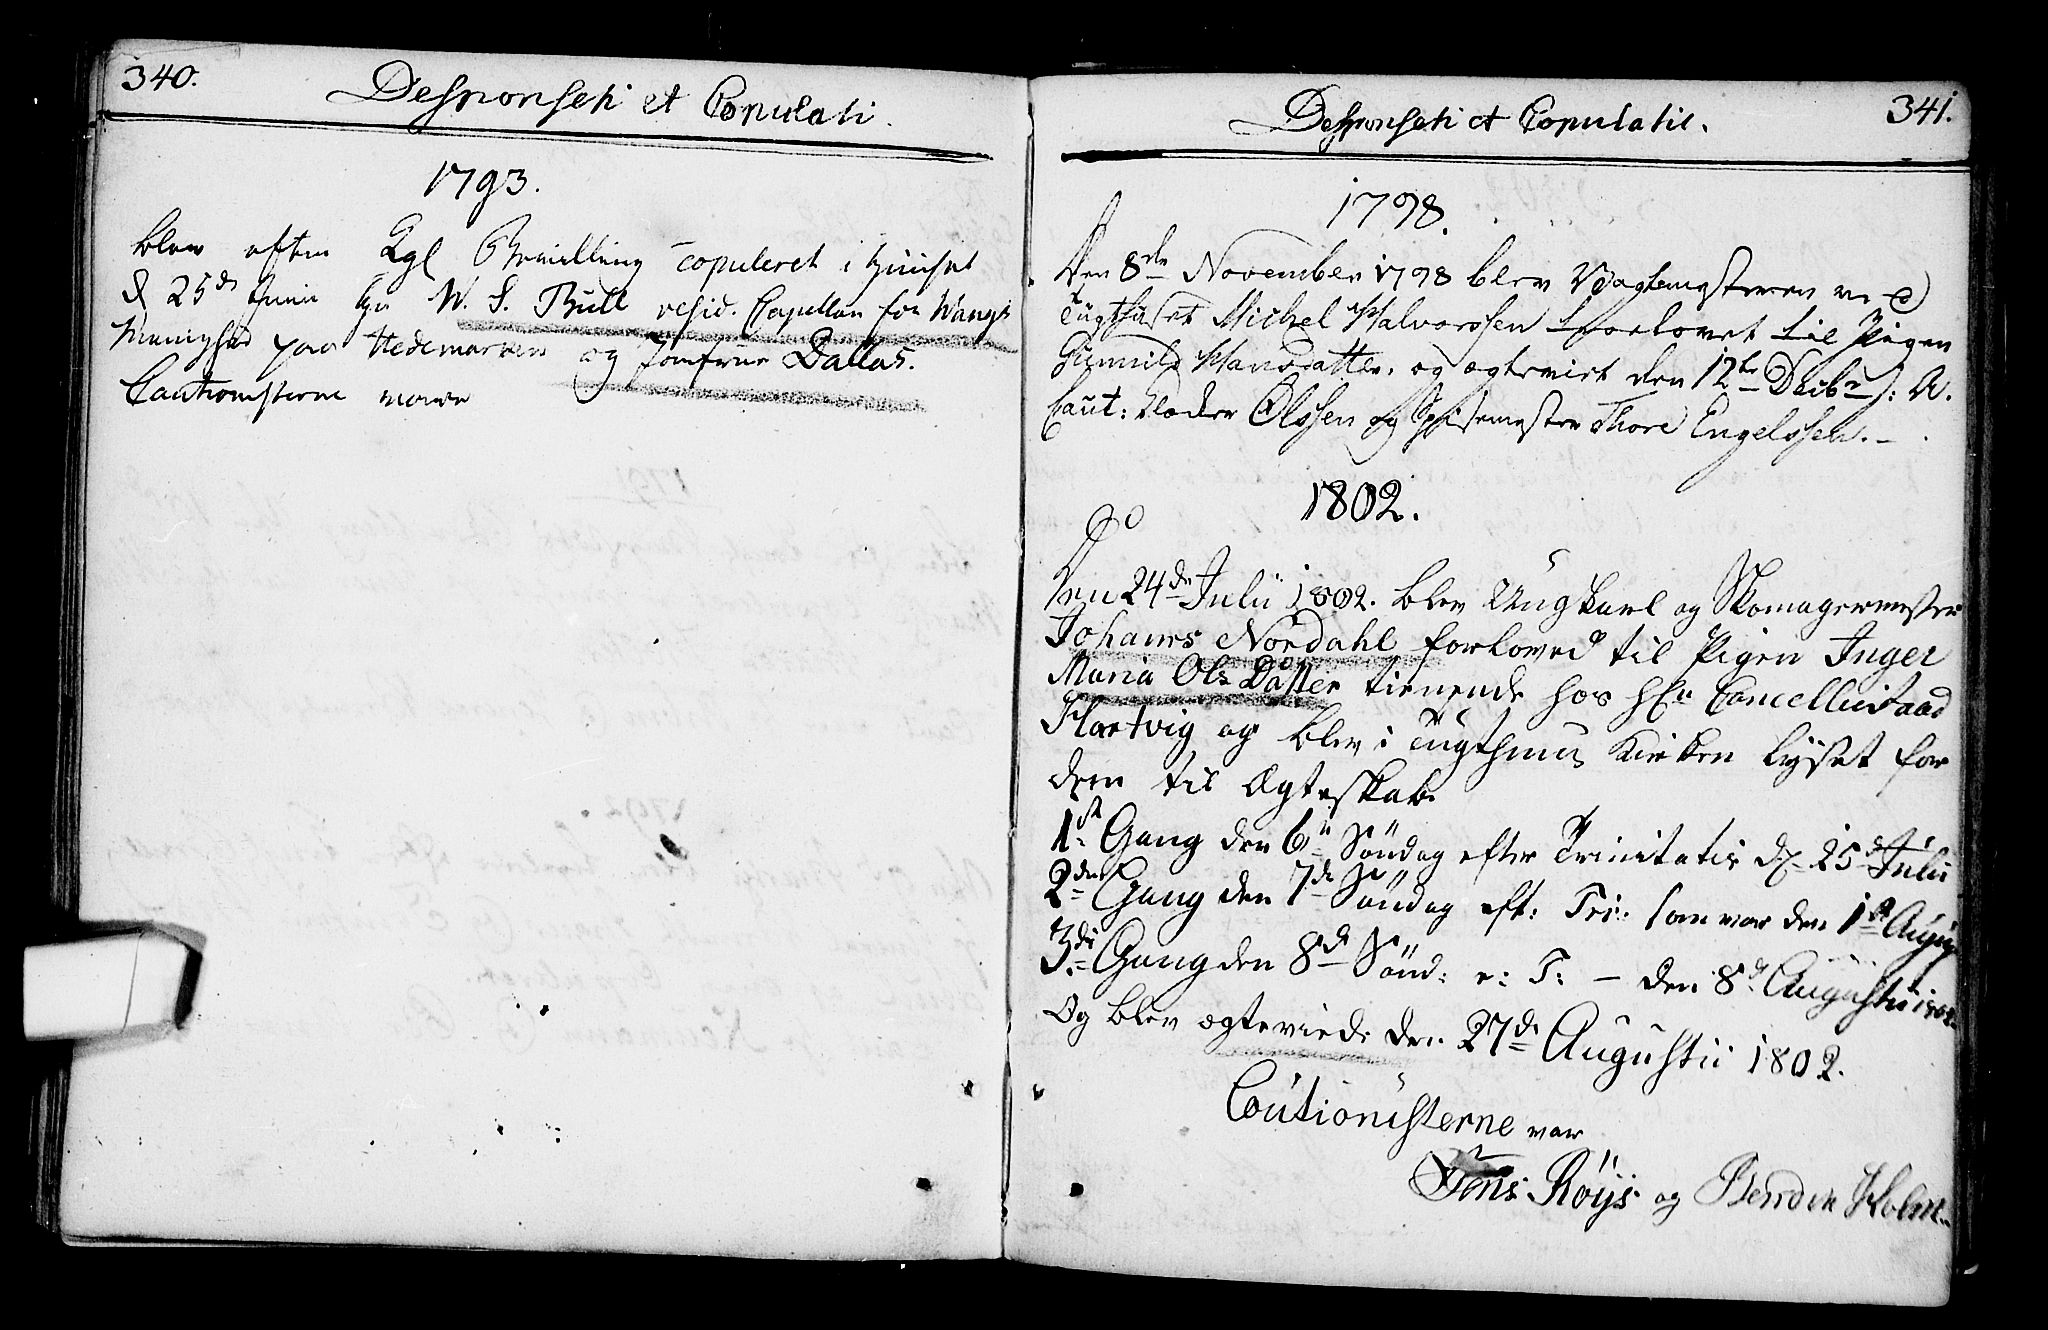 340.
Desponsati et Copulati.
1793.
blev efter Kgl Bevilling copuleret i Huuset
d 25de Junii Hr W. S. Bull resid. Capellan for Wangs
Menighed paa Hedemarken og Jomfrue Dallas.
Cautionisterne vare
341.
Desponsati et Copulatie.
1798.
Den 8de November 1798 blev Vagtmesteren ved
Tugthuset Michel Halvorssen trolovet til Pigen
Gunnild Hansdatter, og ægteviet den 12te Decbr s: A.
Caut: Peder Olssen og Spisemester Thore Engelssen.
1802.
Den 24de Julii 1802. blev Ungkarl og Skomagermester
Johanes Nordahl forloved til Pigen Inger
Maria Ols Datter tienende hos Hr Cancelliraad
Hartvig og blev i Tugthuus Kirken lyset for
dem til Ægteskab.
1ste Gang den 6te Søndag efter Trinitatis d. 25de Julii
2den Gang den 7de Søndag eft: Tri: som var den 1te August
3die Gang den 8de Sønd: e: T: – den 8de Augustii 1802.
Og blev ægteviede den 27de Augustii 1802.
Coutionisterne var
Jens Röÿs og Bendix Holm